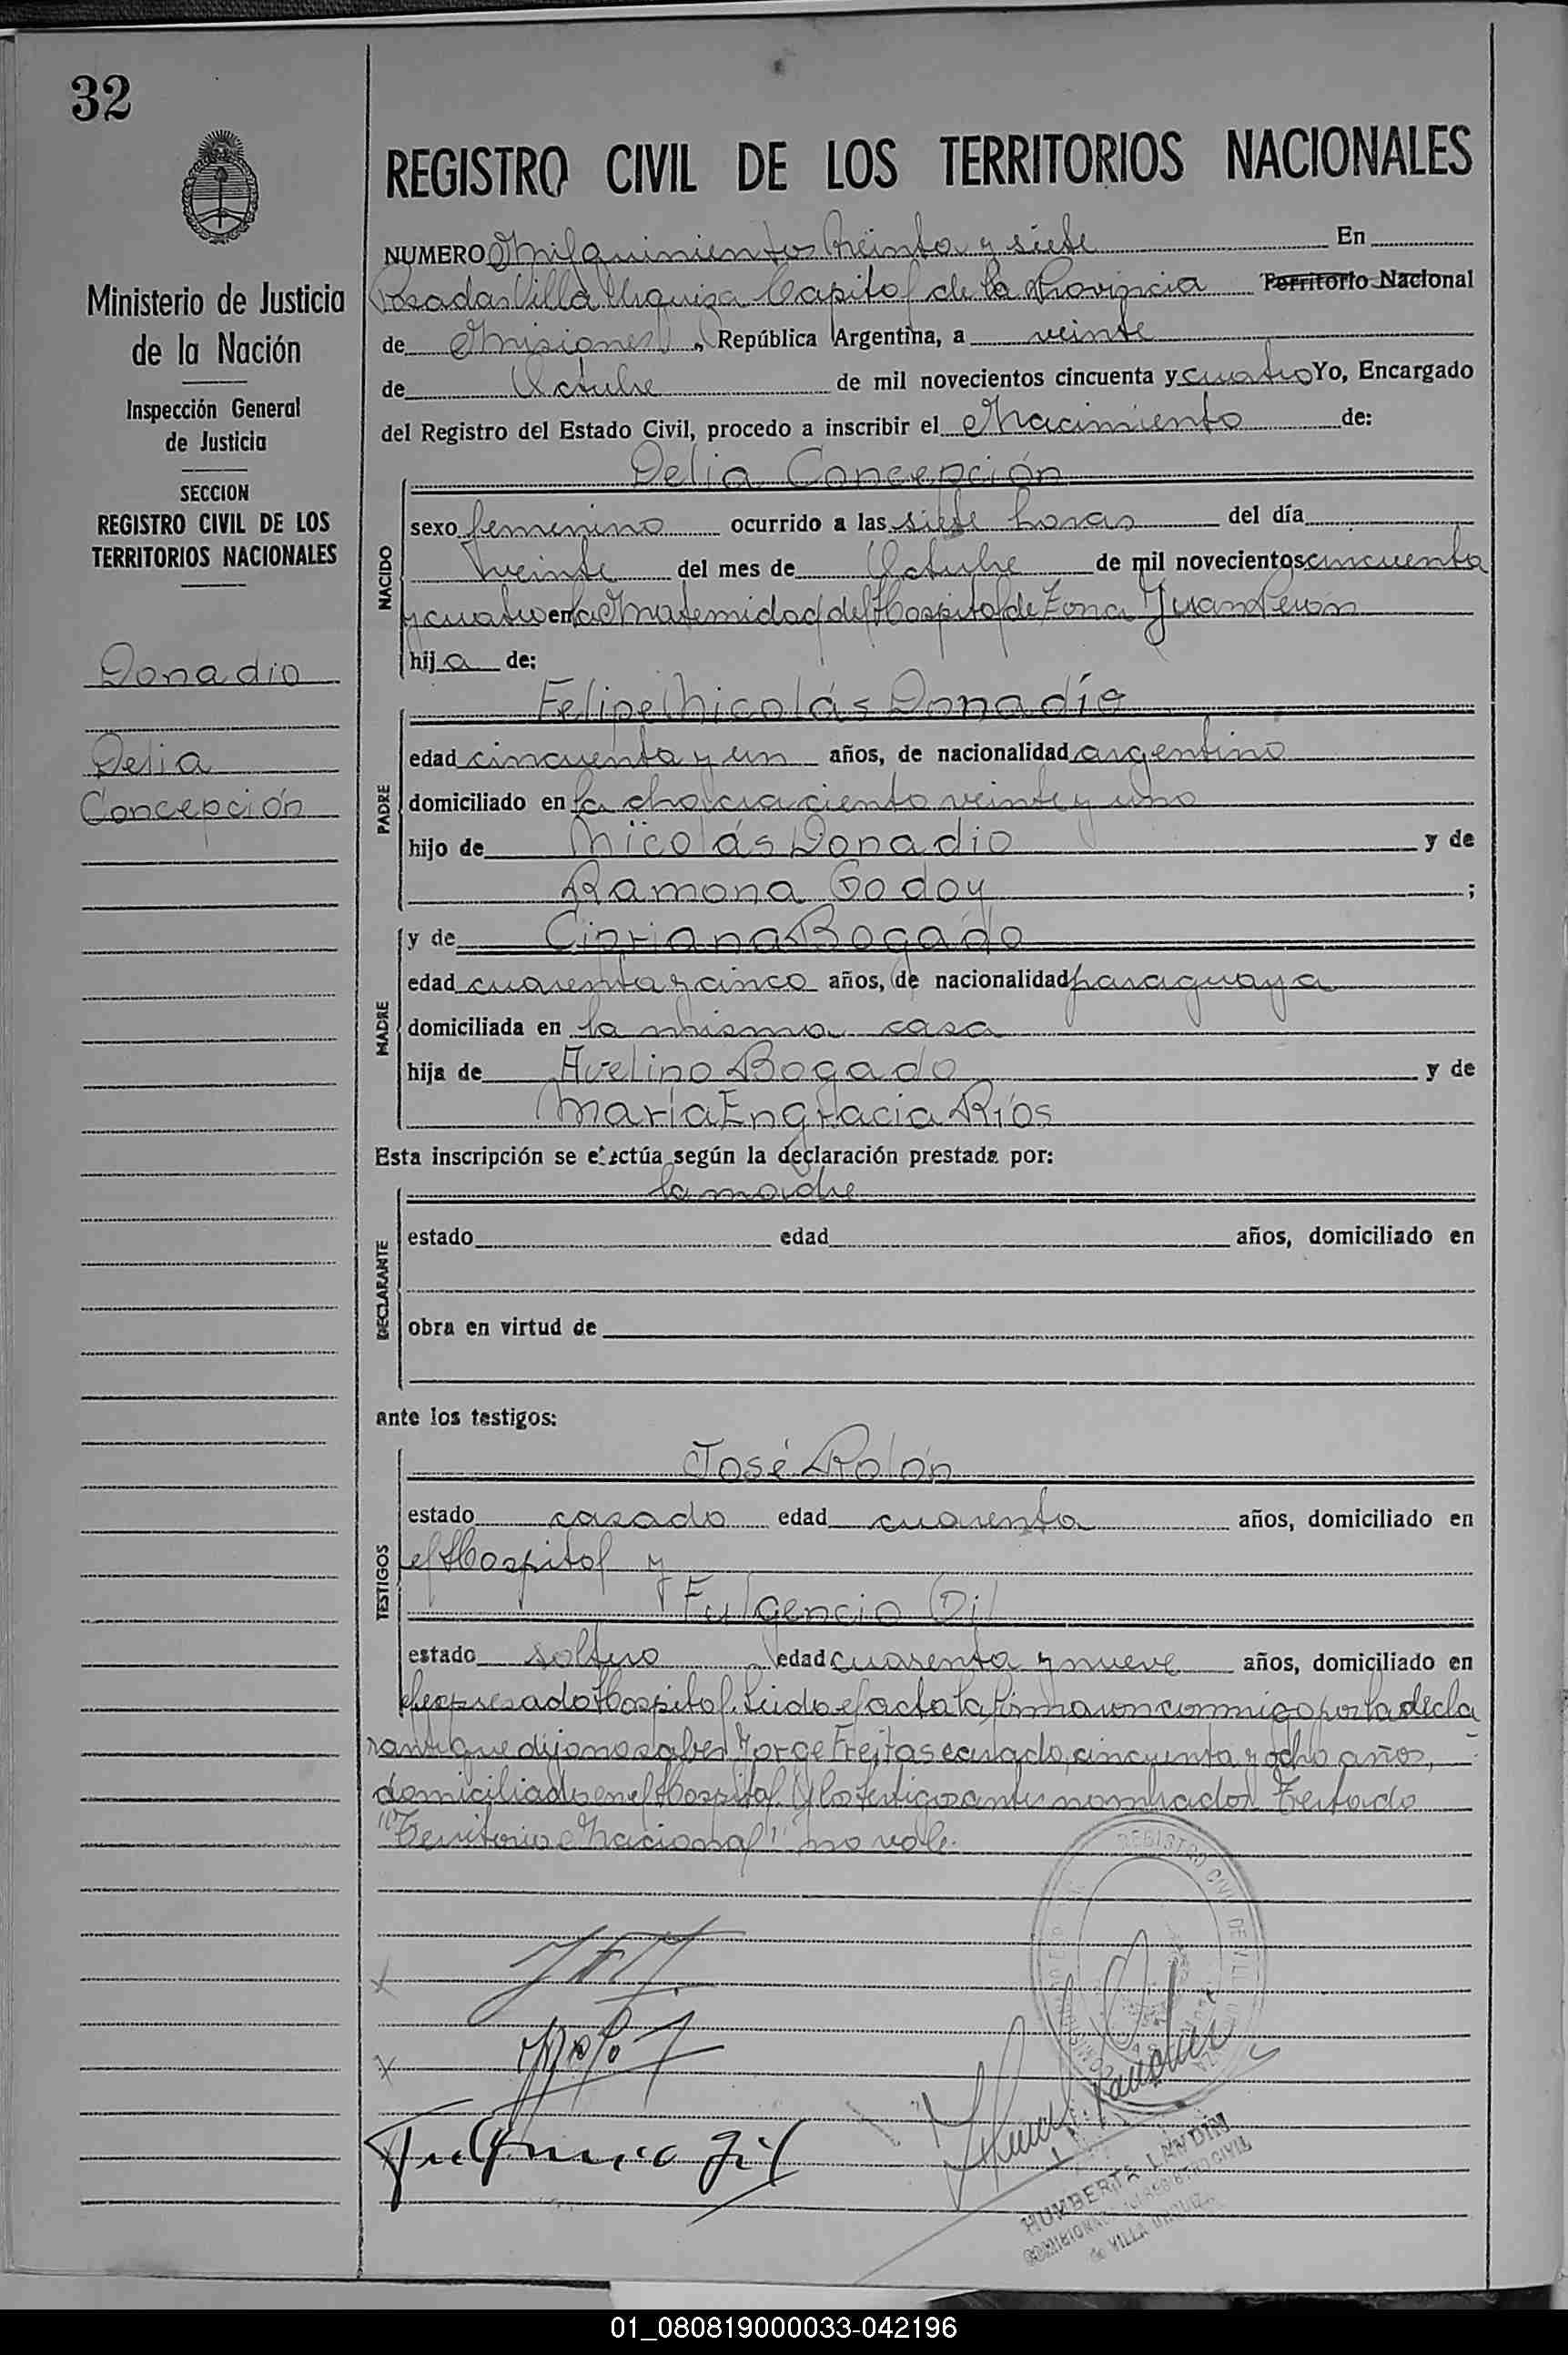 32
Ministerio de Justicia
de la Nación
Inspección General
de Justicia
SECCION
REGISTRO CIVIL DE LOS
TERRITORIOS NACIONALES
Donadio
Delia
Concepción
REGISTRO CIVIL DE LOS TERRITORIOS NACIONALES
NUMERO Mil quinientos treinta y siete En
Posadas Villa Urquiza Capital de la Provincia Territorio Nacional
de Misiones, República Argentina, a veinte
de Octubre de mil novecientos cincuenta y cuatro Yo, Encargado
del Registro del Estado Civil, procedo a inscribir el Nacimiento de:
Delia Concepción
NACIDO
sexo femenino ocurrido a las siete horas del día
veinte del mes de Octubre de mil novecientos cincuenta
y cuatro en la Maternidad del Hospital de Zona Juan Perón
hija de:
Felipe Nicolás Donadío
PADRE
edad cincuenta y un años, de nacionalidad argentino
domiciliado en la chacra ciento veinte y uno
hijo de Nicolás Donadio y de
Ramona Godoy ;
y de Cipriana Bogado
MADRE
edad cuarenta y cinco años, de nacionalidad paraguaya
domiciliada en la misma casa
hija de Avelino Bogado y de
María Engracia Ríos
Esta inscripción se efectúa según la declaración prestada por:
la madre
DECLARANTE
estado edad años, domiciliado en
obra en virtud de
ante los testigos:
José Rolón
TESTIGOS
estado casado edad cuarenta años, domiciliado en
el Hospital y
Fulgencio Gil
estado soltero edad cuarenta y nueve años, domiciliado en
el expresado Hospital. Leido el acta la firmaron conmigo por la decla
rante que dijo no saber Jorge Freitas casado, cincuenta y ocho años,
domiciliado en el Hospital y los testigos antes nombrados. Testado
"Territorio Nacional" no vale.
REGISTRO CIVIL DE VILLA
Fulgencio Gil
HUMBERTO LANDIN
REGISTRO CIVIL
de VILLA URQUIZA
01_080819000033-042196